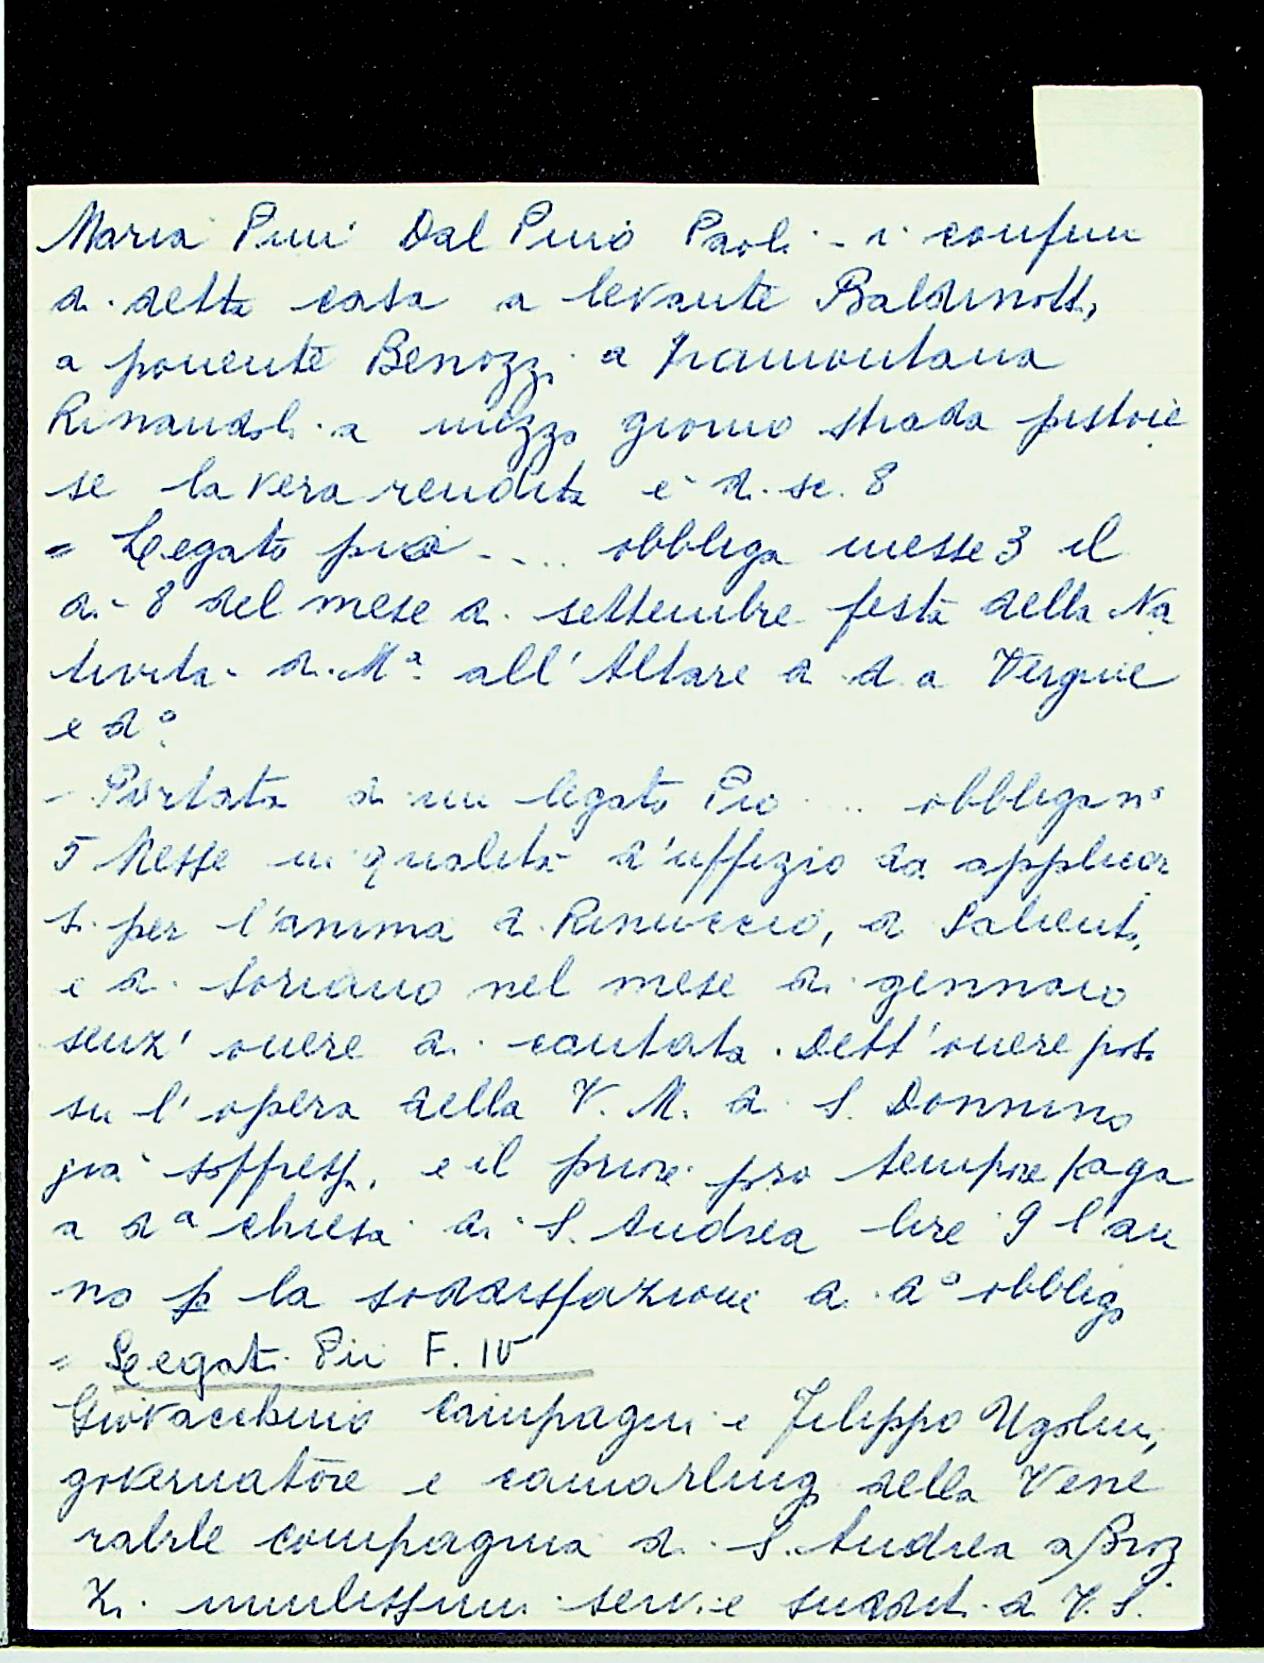 Maria Pini Dal Pino Paoli - i confini
di detta casa a levante Baldinotti,
a ponente Benozzi a tramontana
Rinaudoli a mezzo giorno strada pistoie
se la vera rendita è di sc. 8
= Legato pio - ... obbliga messe 3 il
dì 8 del mese di settembre festa della Na
tività di Mª all'Altare di da Vergine
e dº
- Portata di un legato Pio ... obbliga nº
5 Messe in qualità d'uffizio da applicar
si per l'anima di Rinuccio, di Salienti,
e di Soriano nel mese di gennaio
senz' onere di cantata. Dett'onere posto
su l'opera della V. M. di S. Donnino
già soppressa, e il priore pro tempore paga
a dª chiesa di S. Andrea lire 9 l'an
no p la soddisfazione di dº obbligo
= Legati Pii F. IV
Giovacchino Campagni e Filippo Ugolini,
governatore e camarlingo della Vene
rabile compagnia di S. Andrea a Broz
zi umilissimi servi e sudditi di V. S.